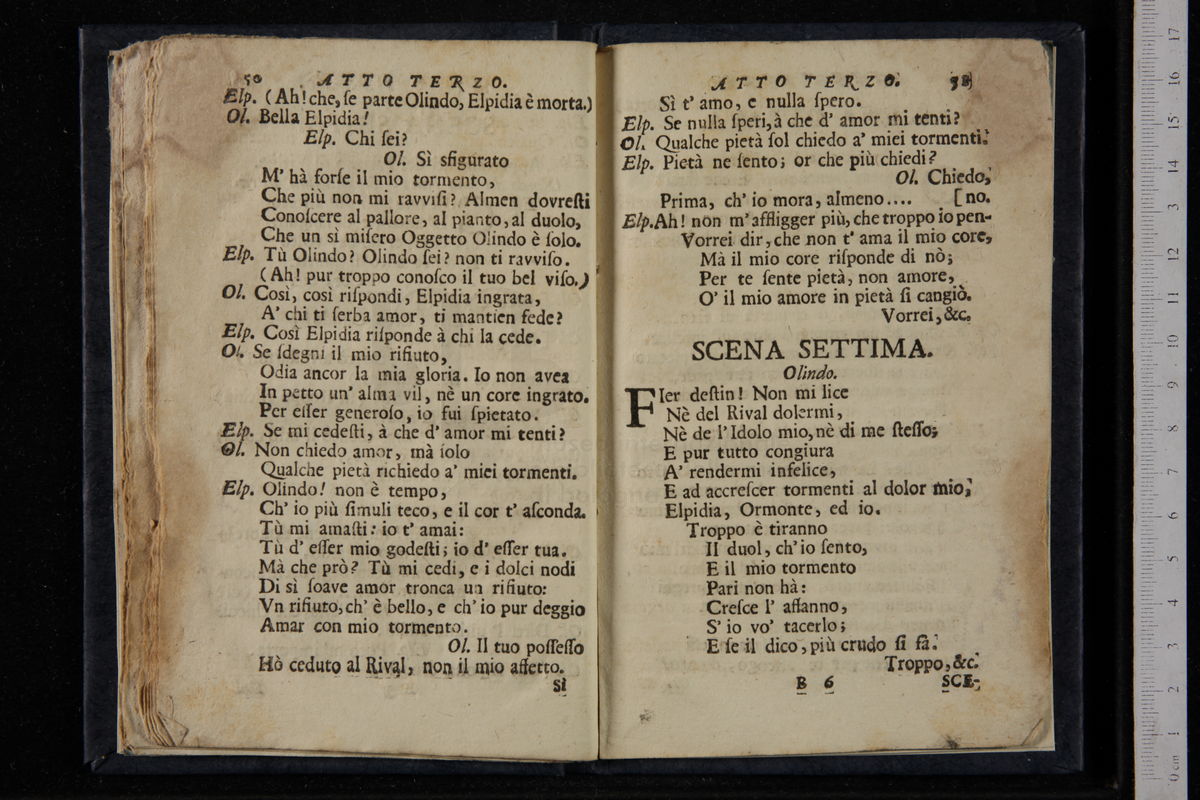 50 ATTO TERZO.
Elp. (Ah! che, ſe parte Olindo, Elpidia è morta.)
Ol. Bella Elpidia!
Elp. Chi ſei?
Ol. Sì sfigurato
M' hà forſe il mio tormento,
Che più non mi ravviſi? Almen dovreſti
Conoſcere al pallore, al pianto, al duolo,
Che un sì miſero Oggetto Olindo è ſolo.
Elp. Tù Olindo? Olindo ſei? non ti ravviſo.
(Ah! pur troppo conoſco il tuo bel viſo.)
Ol. Così, così riſpondi, Elpidia ingrata,
A' chi ti ſerba amor, ti mantien fede?
Elp. Così Elpidia riſponde à chi la cede.
Ol. Se ſdegni il mio rifiuto,
Odia ancor la mia gloria. Io non avea
In petto un' alma vil, nè un core ingrato.
Per eſſer generoſo, io fui ſpietato.
Elp. Se mi cedeſti, à che d' amor mi tenti?
Ol. Non chiedo amor, mà ſolo
Qualche pietà richiedo a' miei tormenti.
Elp. Olindo! non è tempo,
Ch' io più ſimuli teco, e il cor t' aſconda.
Tù mi amaſti: io t' amai:
Tù d' eſſer mio godeſti; io d' eſſer tua.
Mà che prò? Tù mi cedi, e i dolci nodi
Di sì ſoave amor tronca un rifiuto:
Vn rifiuto, ch' è bello, e ch' io pur deggio
Amar con mio tormento.
Ol. Il tuo poſſeſſo
Hò ceduto al Rival, non il mio affetto.
Sì
ATTO TERZO.
Sì t' amo, e nulla ſpero.
Elp. Se nulla ſperi, à che d' amor mi tenti?
Ol. Qualche pietà ſol chiedo a' miei tormenti.
Elp. Pietà ne ſento; or che più chiedi?
Ol. Chiedo,
Prima, ch' io mora, almeno.... [no.
Elp. Ah! non m' affligger più, che troppo io pen-
Vorrei dir, che non t' ama il mio core,
Mà il mio core riſponde di nò;
Per te ſente pietà, non amore,
O' il mio amore in pietà ſi cangiò.
Vorrei, &c.
SCENA SETTIMA.
Olindo.
FIer deſtin! Non mi lice
Nè del Rival dolermi,
Nè de l' Idolo mio, nè di me ſteſſo;
E pur tutto congiura
A' rendermi infelice,
E ad accreſcer tormenti al dolor mio,
Elpidia, Ormonte, ed io.
Troppo è tiranno
Il duol, ch' io ſento,
E il mio tormento
Pari non hà:
Creſce l' affanno,
S' io vo' tacerlo;
E ſe il dico, più crudo ſi fà.
Troppo, &c.
B 6 SCE-